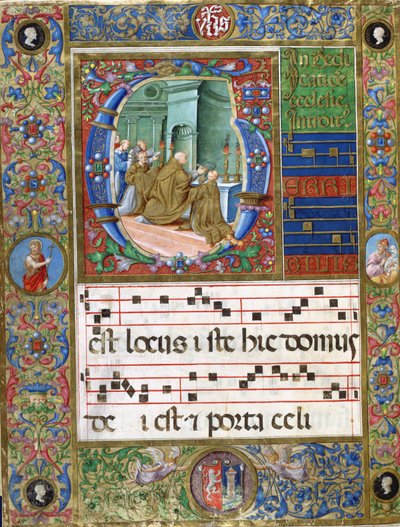 YHS
In dedi
catiõe
ecclesie
Introit
T
ERRI
BILIS
est locus iste hic domus
de i est · ⁊ porta celi